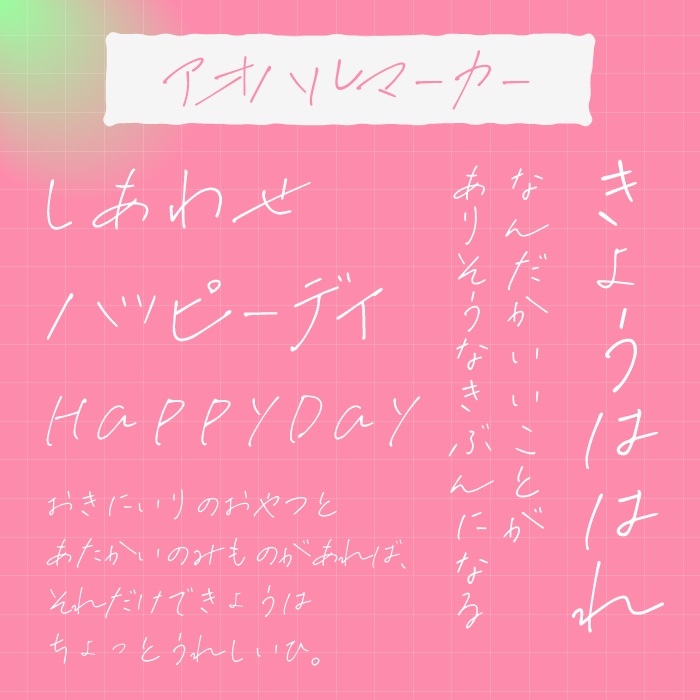 アオハルマーカー
しあわせ
ハッピーデイ
HAPPYDAY
おきにいりのおやつと
あたかいのみものがあれば、
それだけできょうは
ちょっとうれしいひ。
きょうははれ
なんだかいいことが
ありそうなきぶんになる